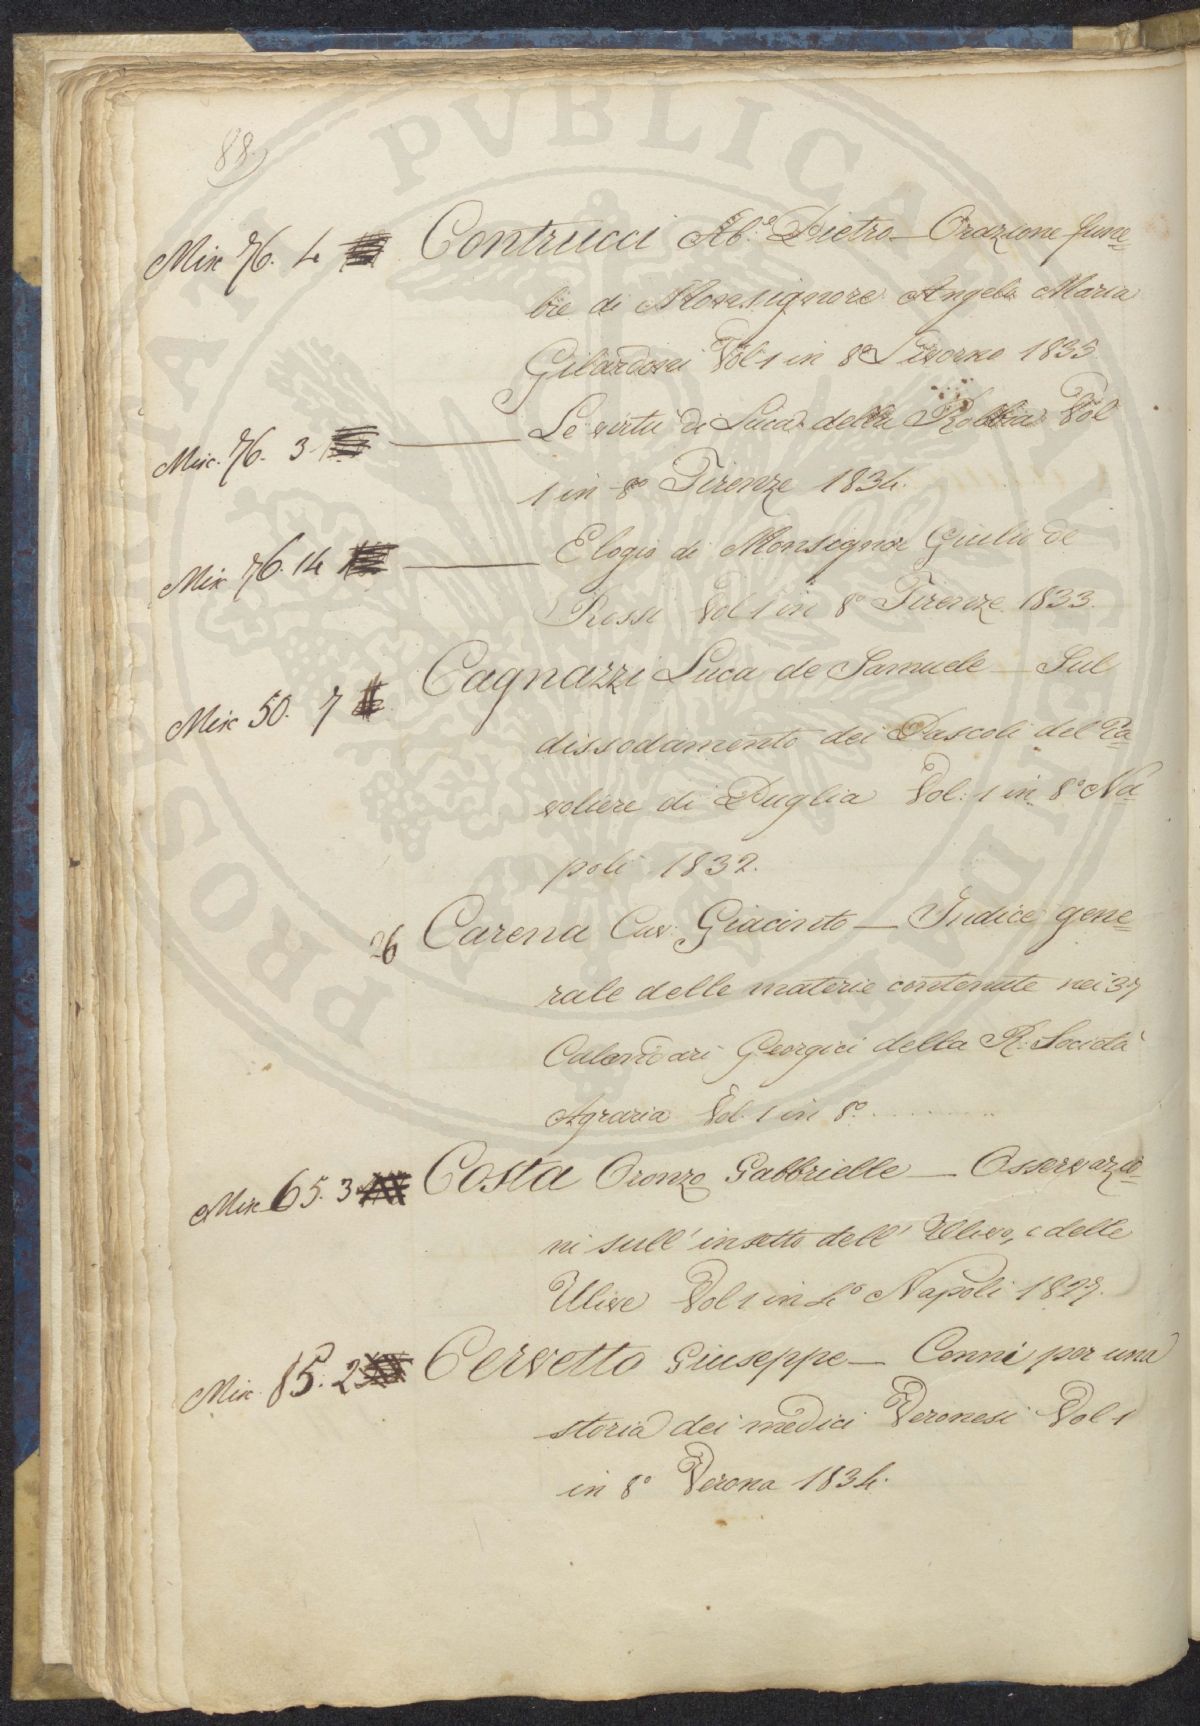 88.
Misc 76. 4 Contrucci Ab.e Pietro — Orazione fune=
bre di Monsignore Angelo Maria
Gilardoni Vol 1 in 8º Livorno 1835
Misc. 76. 3 ——— Le virtù di Luca della Robbia Vol
1 in 8º Firenze 1834.
Misc 76. 14 ——— Elogio di Monsignor Giulio de
Rossi Vol 1 in 8º Firenze 1833.
Misc 50. 7 Cagnazzi Luca de Samuele — Sul
dissodamento dei Pascoli del Ta=
voliere di Puglia Vol: 1 in 8º Na=
poli 1832.
26 Carena Cav: Giacinto — Indice gene=
rale delle materie contenute nei 37
Calendari Georgici della R: Società
Agraria Vol. 1 in 8º ..........
Misc 65. 3 Costa Oronzo Gabbrielle — Osservazio=
ni sull' insetto dell' Ulivo, e delle
Ulive Vol 1 in 4º Napoli 1827.
Misc. 85. 2 Cervetto Giuseppe — Cenni per una
storia dei medici Veronesi Vol 1
in 8º Verona 1834.
PROSPERI PUBLICAE UNDAE